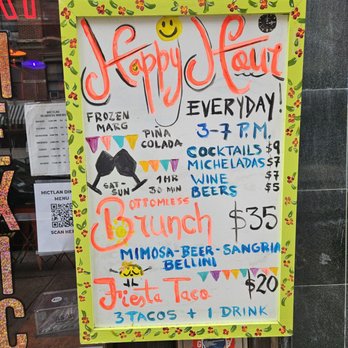 Happy Hour
EVERYDAY!
FROZEN
MARG
PIÑA
COLADA
3-7 P.M.
COCKTAILS $9
MICHELADAS $7
WINE $7
BEERS $5
SAT-
SUN
1 HR
30 MIN
BOTTOMLESS
Brunch $35
MIMOSA-BEER-SANGRIA
BELLINI
Fiesta Taco $20
3 TACOS + 1 DRINK
MICTLAN DI
MENU
SCAN HERE
MEXIC